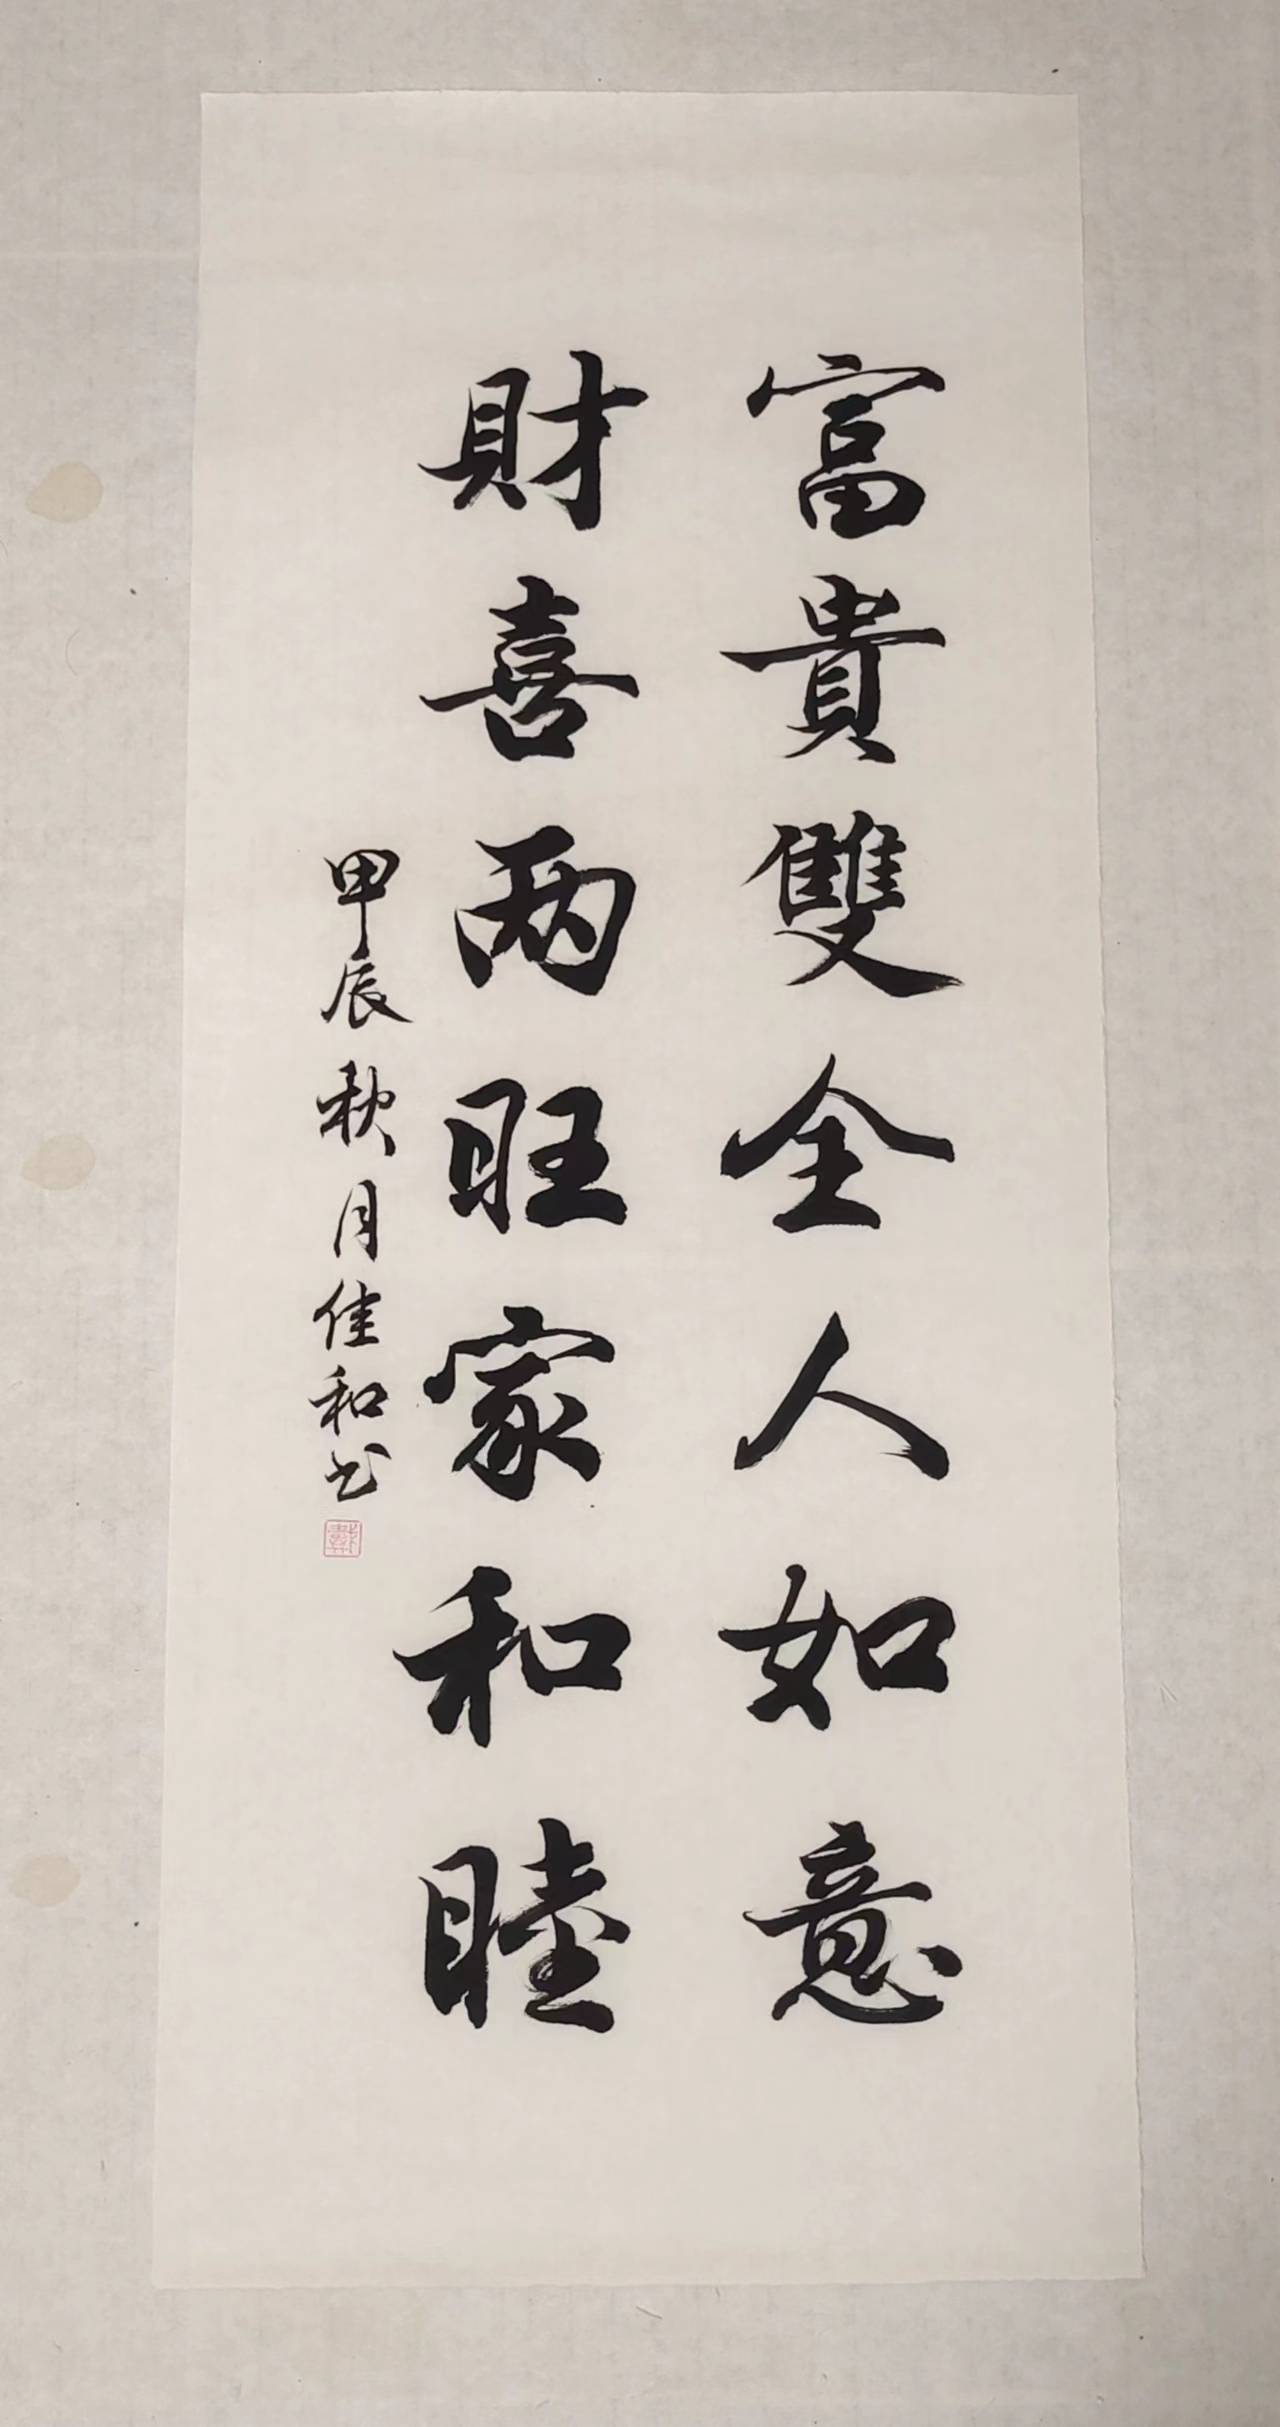 富貴雙全人如意
財喜两旺家和睦
甲辰秋月佳和书
戴